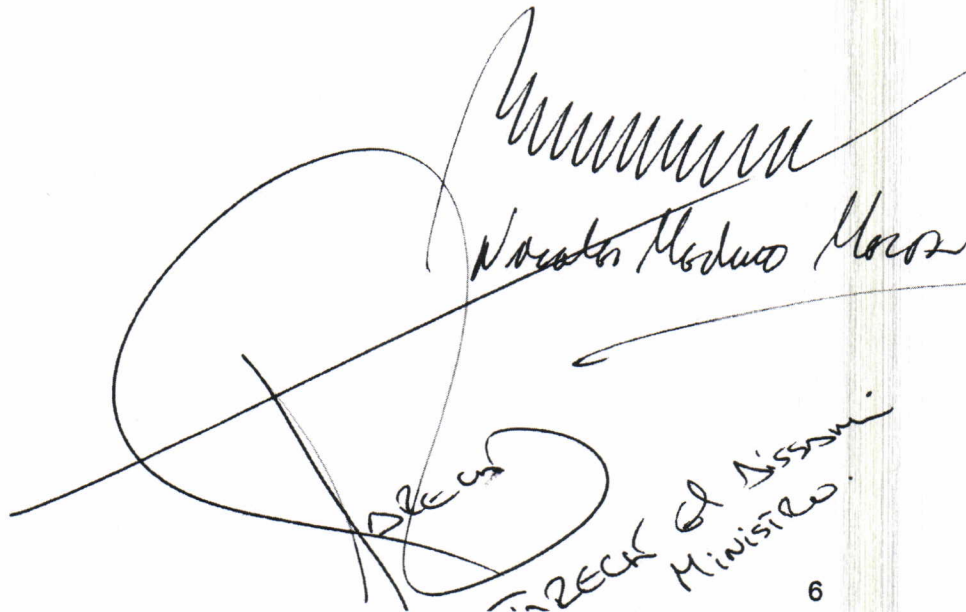 Nicolás Maduro Moros
TARECK El Aissami
Ministro.
6